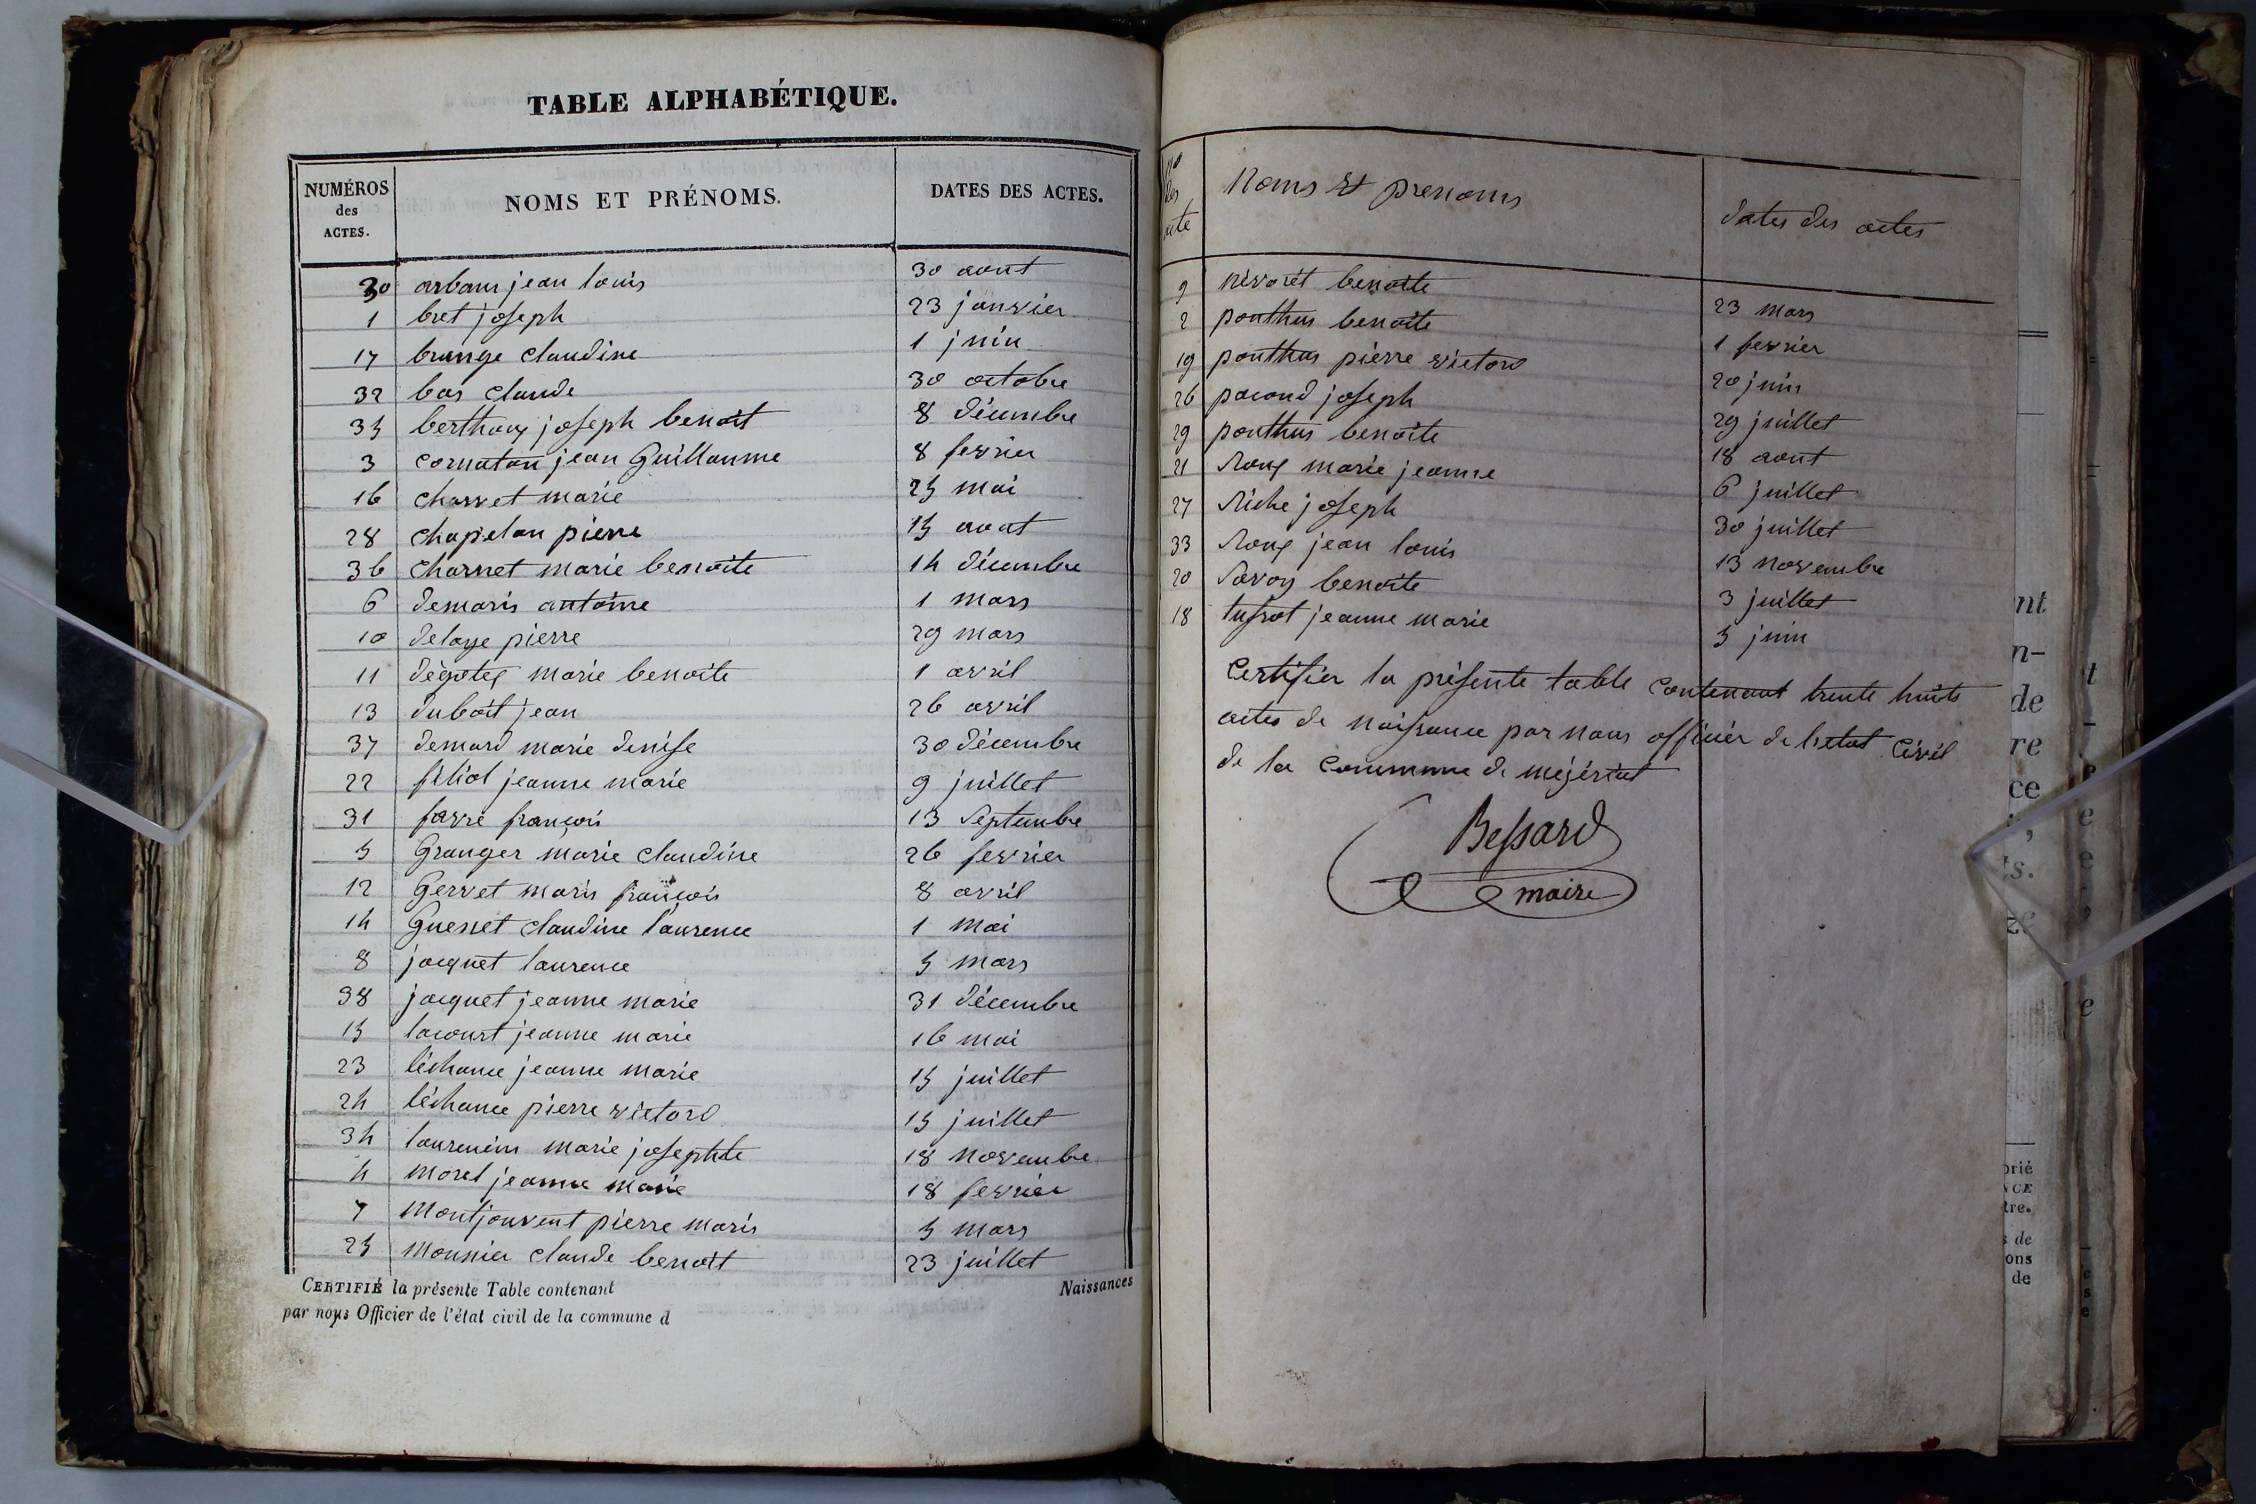 TABLE ALPHABÉTIQUE.
NUMÉROS des ACTES. NOMS ET PRÉNOMS. DATES DES ACTES.
30 arban jean louis 30 aout
1 bret joseph 23 janvier
17 brunge claudine 1 juin
32 bas claude 30 octobre
35 berthoux joseph benoit 8 décembre
3 cornaton jean Guillaume 8 fevrier
16 charvet marie 25 mai
28 chapelan pierre 15 aout
36 charnet marie benoite 14 décembre
6 demaris antoine 1 mars
10 delaye pierre 29 mars
11 dégotex marie benoite 1 avril
13 duboit jean 26 avril
37 demard marie denise 30 décembre
22 féliol jeanne marie 9 juillet
31 favre françois 13 Septembre
5 Granger marie claudine 26 fevrier
12 Gervet maris françois 8 avril
14 Guenet claudine laurence 1 mai
8 jacquet laurence 5 mars
38 jacquet jeanne marie 31 décembre
15 lacourt jeanne marie 16 mai
23 léchance jeanne marie 15 juillet
24 léchance pierre victord 15 juillet
34 laurencin marie josephte 18 novembre
4 morel jeanne marie 18 fevrier
7 montjouvent pierre maris 5 mars
25 monnier claude benoit 23 juillet
CERTIFIÉ la présente Table contenant Naissances
par nous Officier de l'état civil de la commune d
Nos des acte Noms et prenoms dates des actes
9 névorét benoite 23 mars
2 ponthus benoite 1 fevrier
19 ponthus pierre victord 20 juin
26 pacoud joseph 29 juillet
29 ponthus benoite 18 aout
21 Roux marie jeanne 6 juillet
27 Riche joseph 30 juillet
33 Roux jean louis 13 novembre
20 Savoy benoite 3 juillet
18 tussot jeanne marie 5 juin
Certifier la présente table contenant trente huits
actes de naissance par nous officier de létat Civil
de la Commune de mézériat
Bessard
maire
nt
n-
de
re
ce
ts.
ze
prié
NCE
tre.
s de
ons
de